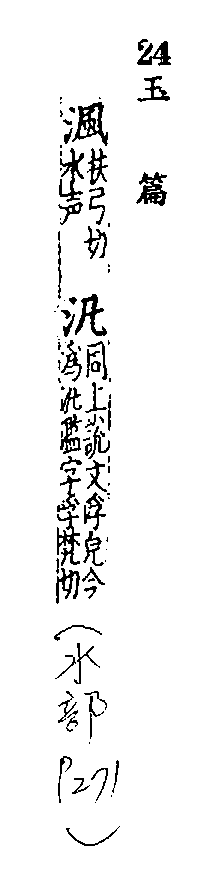 24玉篇
渢扶弓切
水声
汎同上說文浮皃今
為汎濫字孚梵切
(水部
P271)